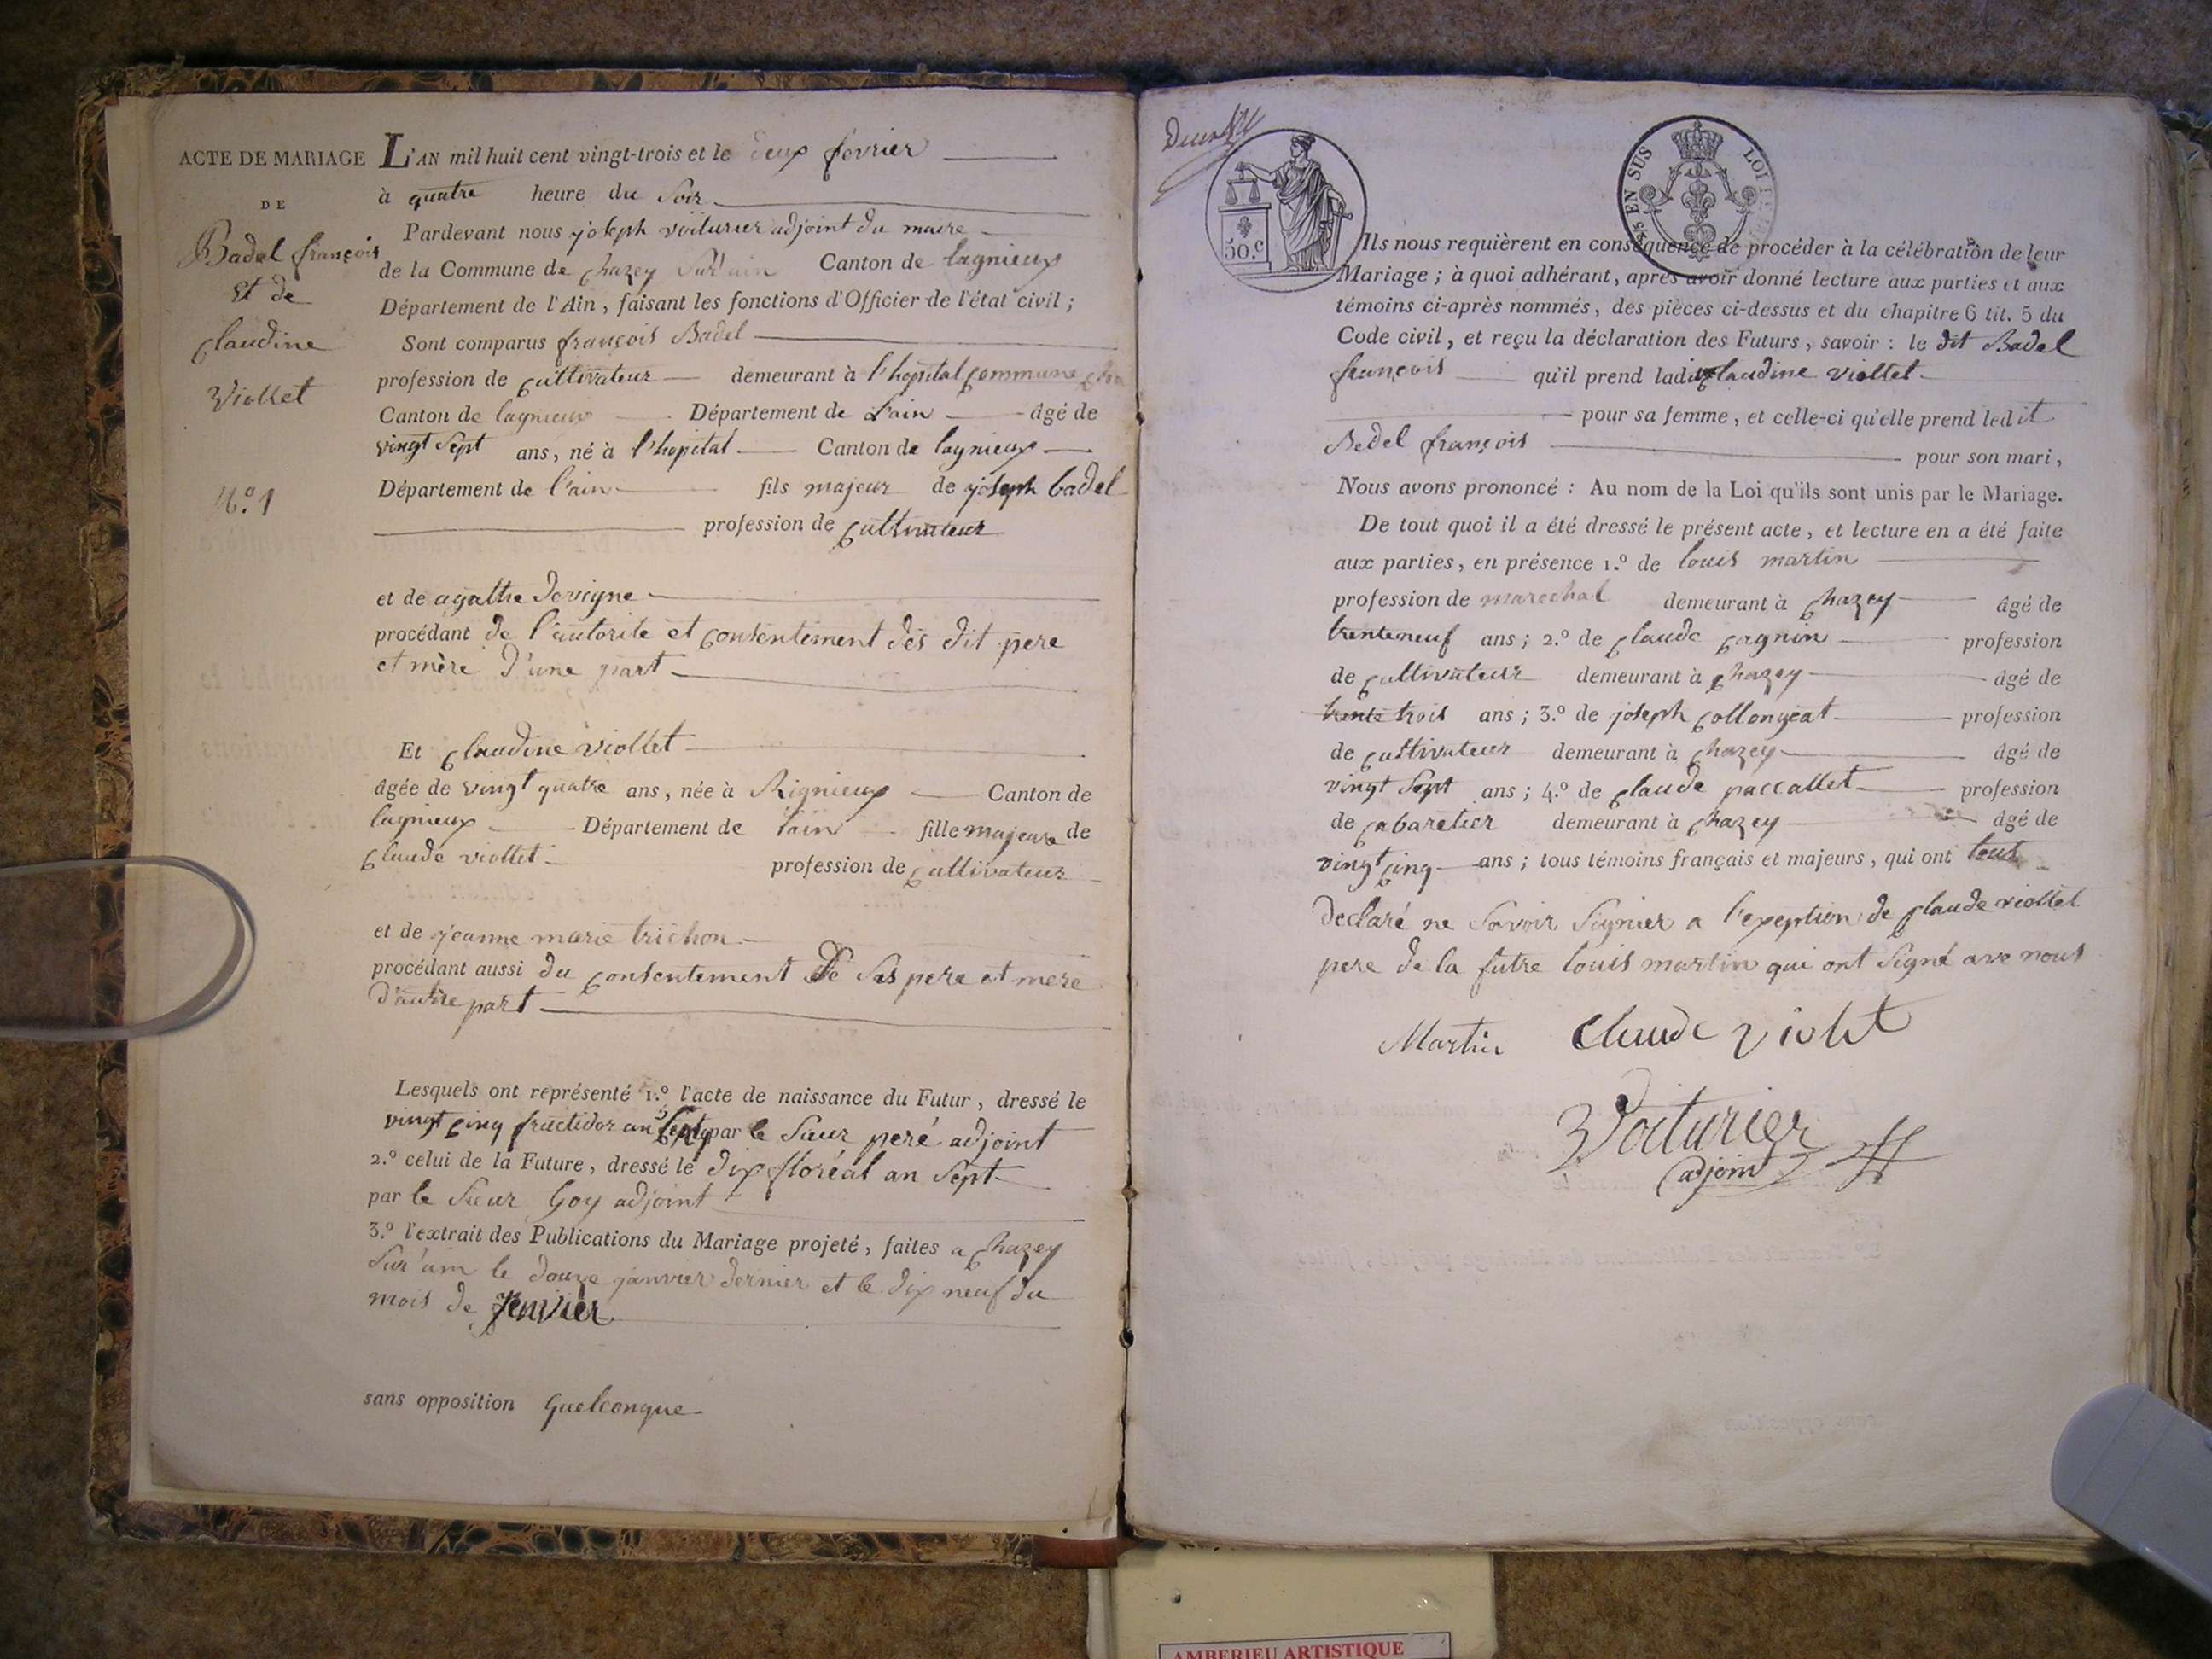 ACTE DE MARIAGE
DE
Badel françois
et de
claudine
Viollet
N.º 1
L'AN mil huit cent vingt-trois et le deux février
à quatre heure du soir
Pardevant nous joseph voiturier adjoint du maire
de la Commune de chazey sur ain Canton de lagnieux
Département de l'Ain, faisant les fonctions d'Officier de l'état civil ;
Sont comparus françois Badel
profession de cultivateur demeurant à l'hopital commune
Canton de lagnieux Département de L'ain âgé de
vingt sept ans, né à l'hopital Canton de lagnieux
Département de l'ain fils majeur de joseph badel
profession de cultivateur
et de agathe devigne
procédant de l'autorite et consentement des dit pere
et mère d'une part
Et claudine viollet
âgée de vingt quatre ans, née à Rignieux Canton de
lagnieux Département de lain fille majeure de
claude viollet profession de cultivateur
et de jeanne marie trichon
procédant aussi du consentement De ses pere et mere
d'autre part
Lesquels ont représenté 1.º l'acte de naissance du Futur, dressé le
vingt cinq fructidor an par le sieur peré adjoint
2.º celui de la Future, dressé le dix floréal an sept
par le sieur Goy adjoint
3.º l'extrait des Publications du Mariage projeté, faites a chazey
sur ain le douze janvier dernier et le dix neuf du
mois de Jenvier
sans opposition quelconque
50.c
EN SUS
LOI
Ils nous requièrent en conséquence de procéder à la célébration de leur
Mariage ; à quoi adhérant, après avoir donné lecture aux parties et aux
témoins ci-après nommés, des pièces ci-dessus et du chapitre 6 tit. 5 du
Code civil, et reçu la déclaration des Futurs, savoir : le dit Badel
françois qu'il prend ladite claudine viollet
pour sa femme, et celle-ci qu'elle prend ledit
Bedel françois pour son mari,
Nous avons prononcé : Au nom de la Loi qu'ils sont unis par le Mariage.
De tout quoi il a été dressé le présent acte, et lecture en a été faite
aux parties, en présence 1.º de louis martin
profession de marechal demeurant à chazey âgé de
trenteneuf ans ; 2.º de claude gagnin profession
de cultivateur demeurant à chazey âgé de
trente trois ans ; 3.º de joseph collongeat profession
de cultivateur demeurant à chazey âgé de
vingt sept ans ; 4.º de claude paccallet profession
de cabaretier demeurant à chazey âgé de
vingt cinq ans ; tous témoins français et majeurs, qui ont tous
declaré ne savoir signier a l'exeption de claude viollet
pere de la futre louis martin qui ont signé ave nous
Martin claude violet
Voiturier
adjoint
AMBERIEU ARTISTIQUE